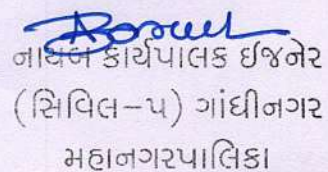 નાયબ કાર્યપાલક ઇજનેર
(સિવિલ-૫) ગાંધીનગર
મહાનગરપાલિકા